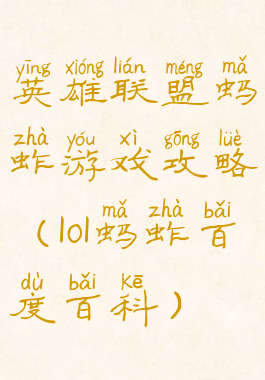 yīng xióng lián méng mǎ
英雄联盟蚂
zhà yóu xì gōng lüè
蚱游戏攻略
mǎ zhà bǎi
(lol蚂蚱百
dù bǎi kē
度百科)